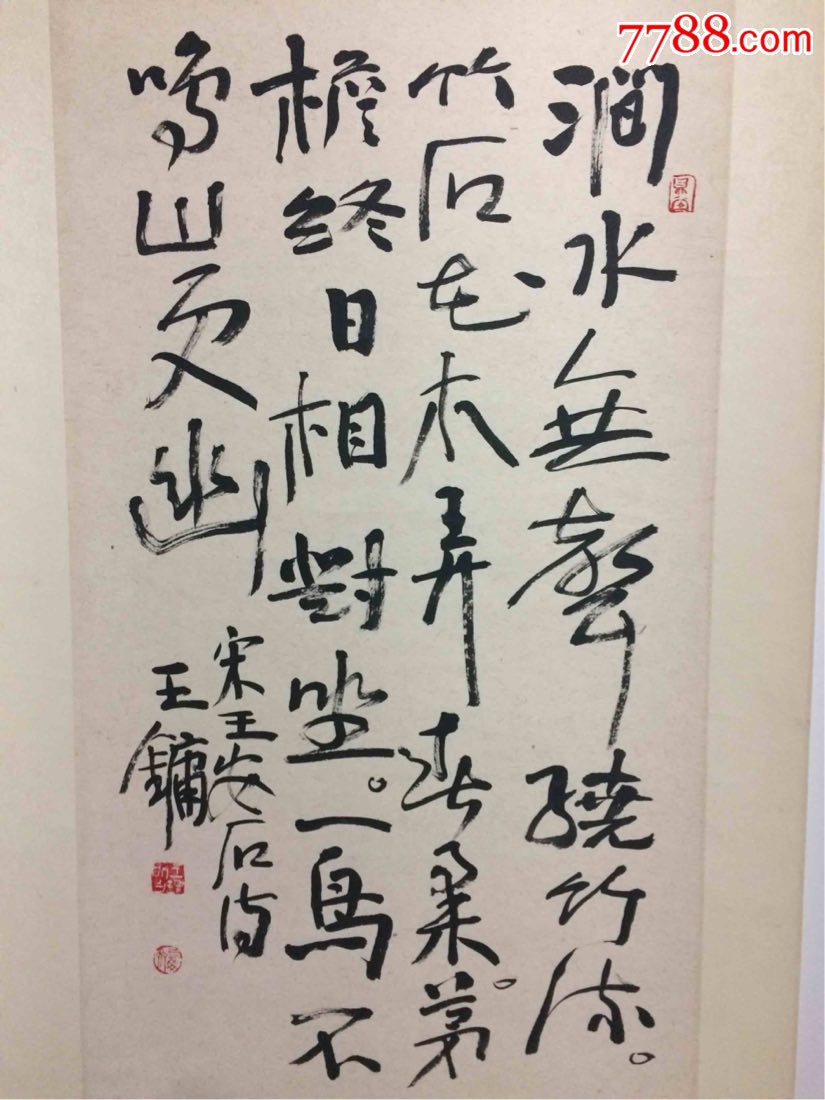 7788.com
澗水無聲繞竹流。
竹石花木弄春柔。茅
檐終日相對坐。一鳥不
鳴山更幽
宋王安石诗
王鏞